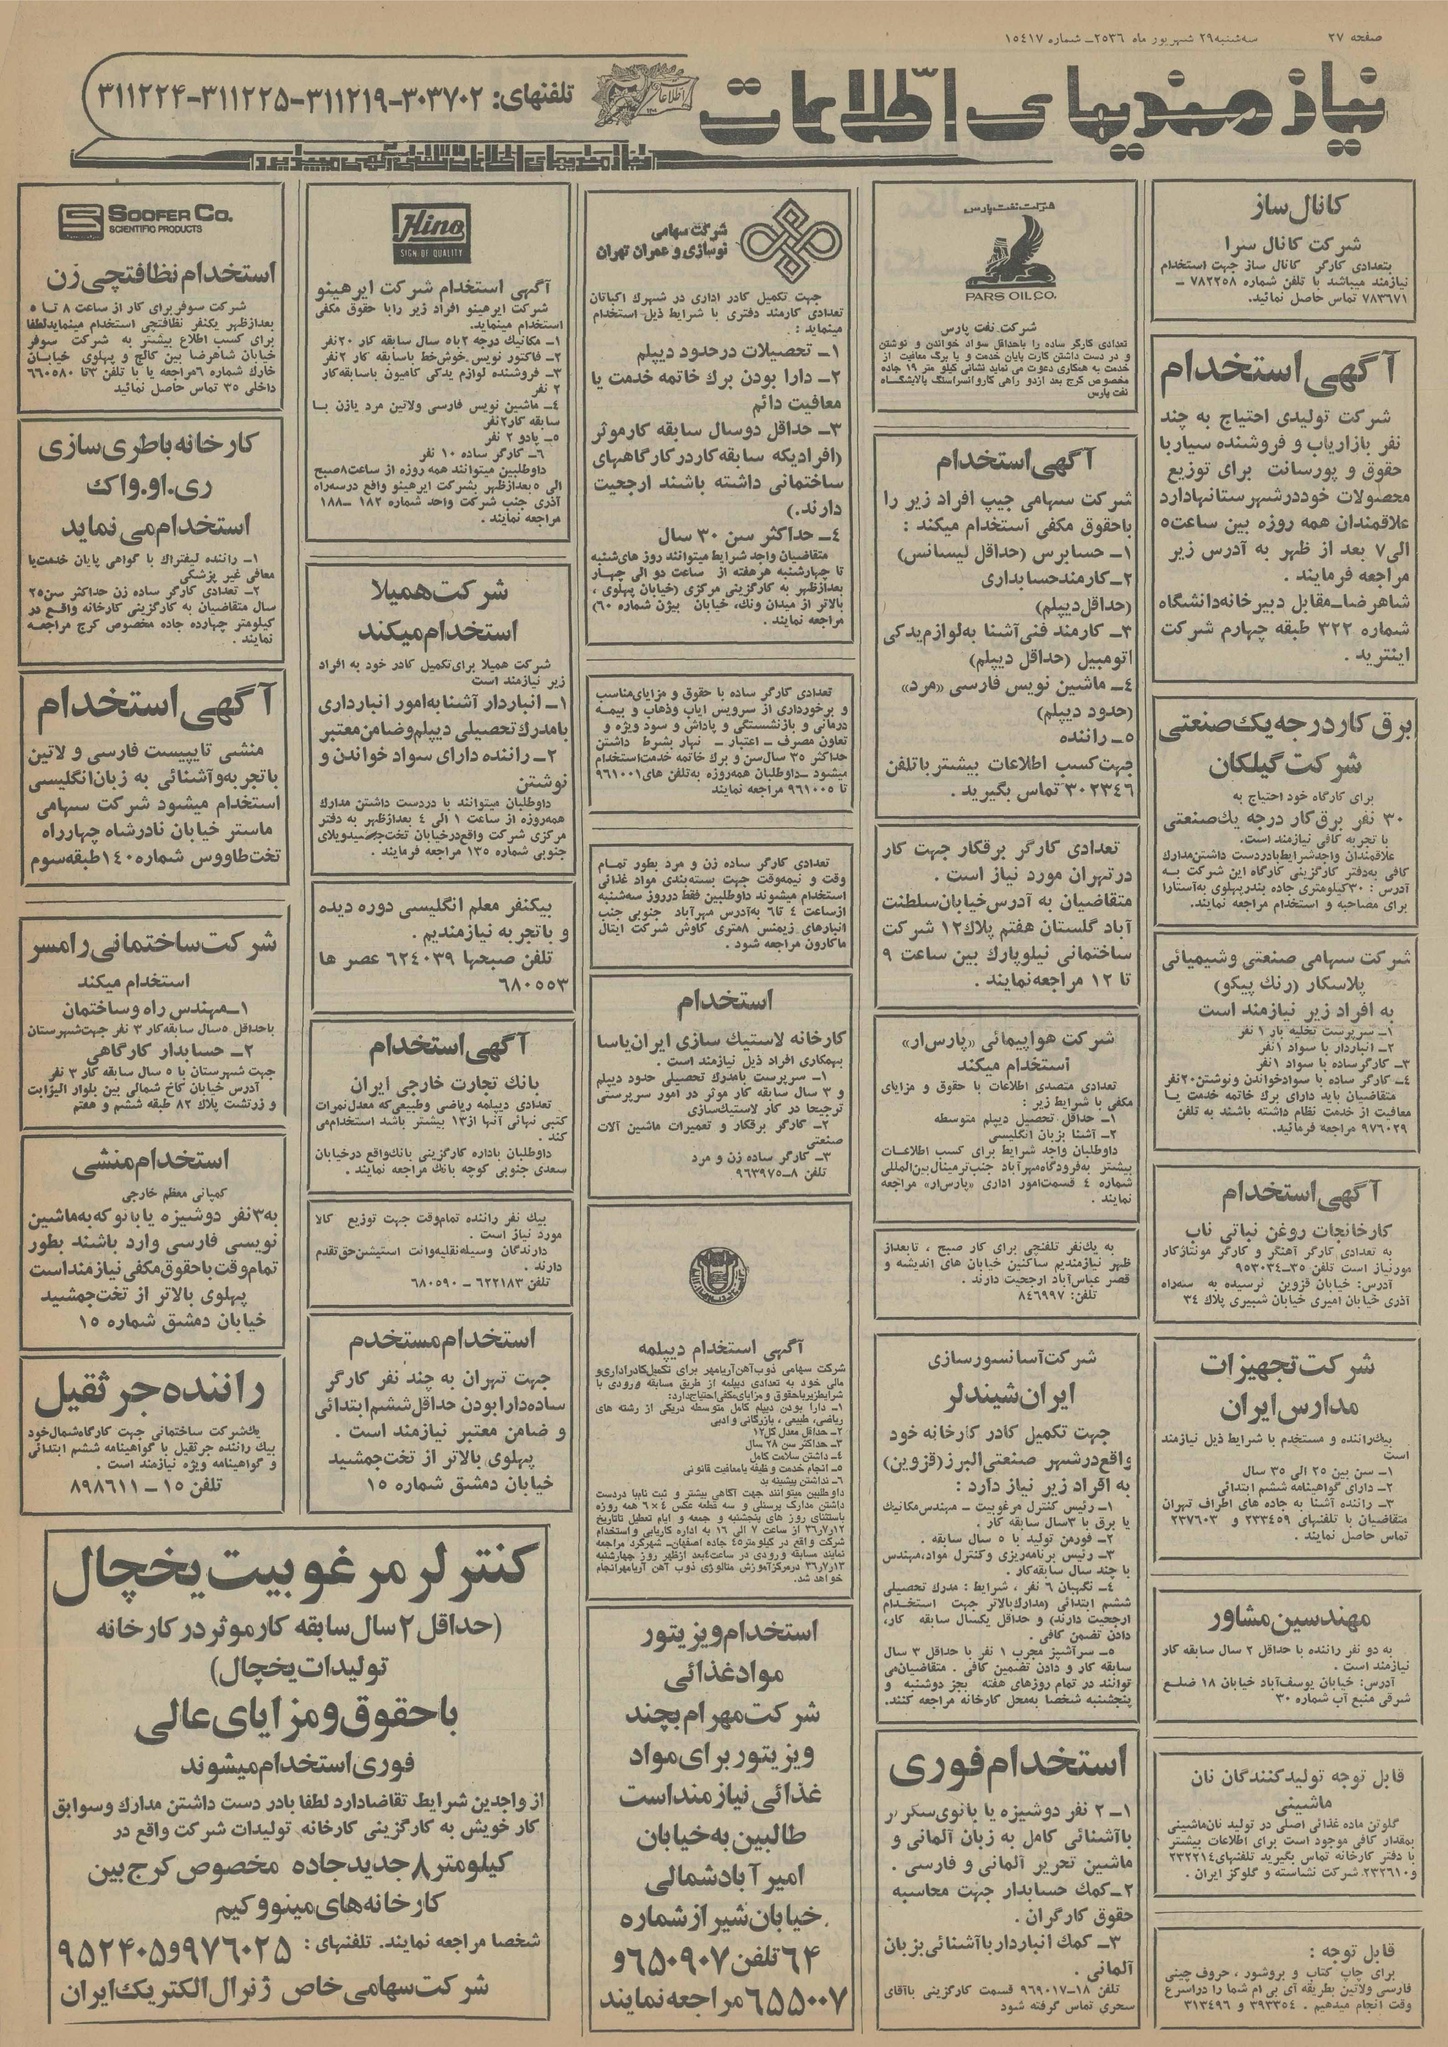 صفحه ۲۷
سه‌شنبه ۲۹ شهریور ماه ۲۵۳۶ـ شماره ۱۵۴۱۷
نیازمندیهای اطلاعات
تلفنهای: ۳۰۳۷۰۲-۳۱۱۲۱۹-۳۱۱۲۲۵-۳۱۱۲۲۴
نیازمندیهای اطلاعات تلفنی آگهی میپذیرد
کانال ساز
شرکت کانال سرا
بتعدادی کارگر کانال ساز جهت استخدام
نیازمند میباشد با تلفن شماره ۷۸۲۲۵۸ ـ
۷۸۳۶۷۱ تماس حاصل نمائید.
آگهی استخدام
شرکت تولیدی احتیاج به چند
نفر بازاریاب و فروشنده سیار با
حقوق و پورسانت برای توزیع
محصولات خود در شهرستانها دارد
علاقمندان همه روزه بین ساعت ۵
الی ۷ بعد از ظهر به آدرس زیر
مراجعه فرمایند .
شاهرضا ـ مقابل دبیرخانه دانشگاه
شماره ۳۲۲ طبقه چهارم شرکت
اینترید .
برق کار درجه یک صنعتی
شرکت گیلکان
برای کارگاه خود احتیاج به
۳۰ نفر برق کار درجه یک صنعتی
با تجربه کافی نیازمند است.
علاقمندان واجد شرایط با در دست داشتن مدارک
کافی به دفتر کارگزینی کارگاه این شرکت به
آدرس : ۳۰ کیلومتری جاده بندرپهلوی به آستارا
برای مصاحبه و استخدام مراجعه نمایند.
شرکت سهامی صنعتی و شیمیائی
پلاسکار (رنگ پیکو)
به افراد زیر نیازمند است
۱ـ سرپرست تخلیه بار ۱ نفر
۲ـ انباردار با سواد ۱ نفر
۳ـ کارگر ساده با سواد ۱ نفر
۴ـ کارگر ساده با سواد خواندن و نوشتن ۲۰ نفر
متقاضیان باید دارای برگ خاتمه خدمت یا
معافیت از خدمت نظام داشته باشند به تلفن
۹۷۶۰۲۹ مراجعه فرمائید.
آگهی استخدام
کارخانجات روغن نباتی ناب
به تعدادی کارگر آهنگر و کارگر مونتاژکار
مورد نیاز است تلفن ۳۵ـ۹۵۳۰۳۴
آدرس: خیابان قزوین نرسیده به سه‌راه
آذری خیابان امیری خیابان شبیری پلاک ۳۴
شرکت تجهیزات
مدارس ایران
بیک راننده و مستخدم با شرایط ذیل نیازمند
است
۱ـ سن بین ۲۵ الی ۳۵ سال
۲ـ دارای گواهینامه ششم ابتدائی
۳ـ راننده آشنا به جاده های اطراف تهران
متقاضیان با تلفنهای ۲۳۳۴۵۹ و ۲۳۷۶۰۳
تماس حاصل نمایند .
مهندسین مشاور
به دو نفر راننده با حداقل ۲ سال سابقه کار
نیازمند است .
آدرس: خیابان یوسف‌آباد خیابان ۱۸ ضلع
شرقی منبع آب شماره ۳۰
قابل توجه تولیدکنندگان نان
ماشینی
گلوتن ماده غذائی اصلی در تولید نان ماشینی
بمقدار کافی موجود است برای اطلاعات بیشتر
با دفتر کارخانه تماس بگیرید تلفنهای ۲۳۲۲۱۴
و ۲۳۲۶۱۰ شرکت نشاسته و گلوکز ایران .
قابل توجه :
برای چاپ کتاب و بروشور ، حروف چینی
فارسی ولاتین بطریقه آی بی ام شما را در اسرع
وقت انجام میدهیم . ۳۹۳۳۵۴ و ۳۱۳۴۹۶
شرکت نفت پارس
PARS OIL CO.
شرکت نفت پارس
تعدادی کارگر ساده را با حداقل سواد خواندن و نوشتن
و در دست داشتن کارت پایان خدمت و یا برگ معافیت از
خدمت به همکاری دعوت می نماید نشانی کیلو متر ۱۹ جاده
مخصوص کرج بعد از دو راهی کاروانسراسنگ پالایشگاه
نفت پارس
آگهی استخدام
شرکت سهامی جیپ افراد زیر را
با حقوق مکفی استخدام میکند :
۱ـ حسابرس (حداقل لیسانس)
۲ـ کارمند حسابداری
(حداقل دیپلم)
۳ـ کارمند فنی آشنا به لوازم یدکی
اتومبیل (حداقل دیپلم)
۴ـ ماشین نویس فارسی «مرد»
(حدود دیپلم)
۵ـ راننده
جهت کسب اطلاعات بیشتر با تلفن
۳۰۲۳۴۶ تماس بگیرید .
تعدادی کارگر برقکار جهت کار
در تهران مورد نیاز است .
متقاضیان به آدرس خیابان سلطنت
آباد گلستان هفتم پلاک ۱۲ شرکت
ساختمانی نیلوپارک بین ساعت ۹
تا ۱۲ مراجعه نمایند .
شرکت هواپیمائی «پارس ار»
استخدام میکند
تعدادی متصدی اطلاعات با حقوق و مزایای
مکفی با شرایط زیر :
۱ـ حداقل تحصیل دیپلم متوسطه
۲ـ آشنا بزبان انگلیسی
داوطلبان واجد شرایط برای کسب اطلاعات
بیشتر به فرودگاه مهرآباد جنب ترمینال بین‌المللی
شماره ۴ قسمت امور اداری «پارس ار» مراجعه
نمایند .
به یک نفر تلفنچی برای کار صبح ، تا بعداز
ظهر نیازمندیم ساکنین خیابان های اندیشه و
قصر عباس‌آباد ارجحیت دارند .
تلفن: ۸۴۶۹۹۷
شرکت آسانسورسازی
ایران شیندلر
جهت تکمیل کادر کارخانه خود
واقع در شهر صنعتی البرز (قزوین)
به افراد زیر نیاز دارد :
۱ـ رئیس کنترل مرغوبیت ـ مهندس مکانیک
یا برق با ۳ سال سابقه کار .
۲ـ فورمن تولید با ۵ سال سابقه .
۳ـ رئیس برنامه‌ریزی و کنترل مواد، مهندس
با چند سال سابقه کار .
۴ـ نگهبان ۶ نفر ، شرایط : مدرک تحصیلی
ششم ابتدائی (مدارک بالاتر جهت استخدام
ارجحیت دارند) و حداقل یکسال سابقه کار،
دادن تضمن کافی .
۵ـ سرآشپز مجرب ۱ نفر با حداقل ۳ سال
سابقه کار و دادن تضمین کافی . متقاضیان می
توانند در تمام روزهای هفته بجز دوشنبه و
پنجشنبه شخصا به محل کارخانه مراجعه کنند.
استخدام فوری
۱ـ ۲ نفر دوشیزه یا بانوی سکرتر
با آشنائی کامل به زبان آلمانی و
ماشین تحریر آلمانی و فارسی .
۲ـ کمک حسابدار جهت محاسبه
حقوق کارگران .
۳ـ کمک انباردار با آشنائی بزبان
آلمانی .
تلفن ۱۸ـ۹۶۹۰۱۷ قسمت کارگزینی با آقای
سحری تماس گرفته شود
شرکت سهامی
نوسازی و عمران تهران
جهت تکمیل کادر اداری در شهرک اکباتان
تعدادی کارمند دفتری با شرایط ذیل استخدام
مینماید :
۱ـ تحصیلات در حدود دیپلم
۲ـ دارا بودن برگ خاتمه خدمت یا
معافیت دائم
۳ـ حداقل دو سال سابقه کار موثر
(افرادیکه سابقه کار در کارگاههای
ساختمانی داشته باشند ارجعیت
دارند.)
۴ـ حداکثر سن ۳۰ سال
متقاضیان واجد شرایط میتوانند روز های شنبه
تا چهارشنبه هر هفته از ساعت دو الی چهار
بعدازظهر به کارگزینی مرکزی (خیابان پهلوی ،
بالاتر از میدان ونک، خیابان بیژن شماره ۶۰)
مراجعه نمایند .
تعدادی کارگر ساده با حقوق و مزایای مناسب
و برخورداری از سرویس ایاب و ذهاب و بیمه
درمانی و بازنشستگی و پاداش و سود ویژه و
تعاون مصرف ـ اعتبار ـ نهار بشرط داشتن
حداکثر ۳۵ سال سن و برگ خاتمه خدمت استخدام
میشود ـ داوطلبان همه‌روزه به تلفن های ۹۶۱۰۰۱
تا ۹۶۱۰۰۵ مراجعه نمایند
تعدادی کارگر ساده زن و مرد بطور تمام
وقت و نیمه وقت جهت بسته‌بندی مواد غذائی
استخدام میشوند داوطلبین فقط در روز سه‌شنبه
از ساعت ۴ تا ۶ به آدرس مهرآباد جنوبی جنب
انبارهای زیمنس ۸ متری کاوش شرکت ایتال
ماکارون مراجعه شود .
استخدام
کارخانه لاستیک سازی ایران یاسا
بهمکاری افراد ذیل نیازمند است .
۱ـ سرپرست بامدرک تحصیلی حدود دیپلم
و ۳ سال سابقه کار موثر در امور سرپرستی
ترجیحا در کار لاستیک‌سازی
۲ـ کارگر برقکار و تعمیرات ماشین آلات
صنعتی
۳ـ کارگر ساده زن و مرد
تلفن ۸ـ۹۶۳۹۷۵
آگهی استخدام دیپلمه
شرکت سهامی ذوب‌آهن آریامهر برای تکمیل کادر اداری و
مالی خود به تعدادی دیپلمه از طریق مسابقه ورودی با
شرایط زیر با حقوق و مزایای مکفی احتیاج دارد:
۱ـ دارا بودن دیپلم کامل متوسطه در یکی از رشته های
ریاضی، طبیعی ، بازرگانی و ادبی
۲ـ حداقل معدل کل ۱۲
۳ـ حداکثر سن ۲۸ سال
۴ـ داشتن سلامت کامل
۵ـ انجام خدمت وظیفه یا معافیت قانونی
۶ـ نداشتن پیشینه بد
داوطلبین میتوانند جهت آگاهی بیشتر و ثبت نام با دردست
داشتن مدارک پرسنلی و سه قطعه عکس ۴×۶ همه روزه
باستثنای روز های پنجشنبه و جمعه و ایام تعطیل تا تاریخ
۳۶ر۷ر۱۲ از ساعت ۷ الی ۱۶ به اداره کاریابی و استخدام
شرکت واقع در کیلومتر ۴۵ جاده اصفهان ـ شهرکرد مراجعه
نمایند مسابقه ورودی در ساعت ۴ بعد ازظهر روز چهارشنبه
۳۶ر۷ر۱۳ در مرکز آموزش متالوژی ذوب آهن آریامهر انجام
خواهد شد.
استخدام ویزیتور
مواد غذائی
شرکت مهرام بچند
ویزیتور برای مواد
غذائی نیازمند است
طالبین به خیابان
امیرآباد شمالی
خیابان شیراز شماره
۶۴ تلفن ۶۵۰۹۰۷ و
۶۵۵۰۰۷ مراجعه نمایند
Hino
SIGN OF QUALITY
آگهی استخدام شرکت ایرهینو
شرکت ایرهینو افراد زیر را با حقوق مکفی
استخدام مینماید.
۱ـ مکانیک درجه ۲ با ۵ سال سابقه کار ۲۰ نفر
۲ـ فاکتور نویس خوش‌خط با سابقه کار ۲ نفر
۳ـ فروشنده لوازم یدکی کامیون با سابقه کار
۲ نفر
۴ـ ماشین نویس فارسی ولاتین مرد یا زن با
سابقه کار ۲ نفر
۵ـ پادو ۲ نفر
۶ـ کارگر ساده ۱۰ نفر
داوطلبین میتوانند همه روزه از ساعت ۸ صبح
الی ۵ بعدازظهر بشرکت ایرهینو واقع در سه‌راه
آذری جنب شرکت واحد شماره ۱۸۲ ـ ۱۸۸
مراجعه نمایند .
شرکت همیلا
استخدام میکند
شرکت همیلا برای تکمیل کادر خود به افراد
زیر نیازمند است
۱ـ انباردار آشنا به امور انبارداری
با مدرک تحصیلی دیپلم و ضامن معتبر
۲ـ راننده دارای سواد خواندن و
نوشتن
داوطلبان میتوانند با در دست داشتن مدارک
همه‌روزه از ساعت ۱ الی ۴ بعدازظهر به دفتر
مرکزی شرکت واقع در خیابان تخت جمشید ویلای
جنوبی شماره ۱۳۵ مراجعه فرمایند .
بیکنفر معلم انگلیسی دوره دیده
و با تجربه نیازمندیم .
تلفن صبحها ۶۲۴۰۳۹ عصر ها
۶۸۰۵۵۳
آگهی استخدام
بانک تجارت خارجی ایران
تعدادی دیپلمه ریاضی و طبیعی که معدل نمرات
کتبی نهائی آنها از ۱۳ بیشتر باشد استخدام می
کند .
داوطلبان باداره کارگزینی بانک واقع در خیابان
سعدی جنوبی کوچه بانک مراجعه نمایند .
بیک نفر راننده تمام وقت جهت توزیع کالا
مورد نیاز است .
دارندگان وسیله نقلیه وانت استیشن حق تقدم
دارند .
تلفن ۶۲۲۱۸۳ ـ ۶۸۰۵۹۰
استخدام مستخدم
جهت تهران به چند نفر کارگر
ساده دارا بودن حداقل ششم ابتدائی
و ضامن معتبر نیازمند است .
پهلوی بالاتر از تخت جمشید
خیابان دمشق شماره ۱۵
SOOFER CO.
SCIENTIFIC PRODUCTS
استخدام نظافتچی زن
شرکت سوفر برای کار از ساعت ۸ تا ۵
بعدازظهر یکنفر نظافتچی استخدام مینماید لطفا
برای کسب اطلاع بیشتر به شرکت سوفر
خیابان شاهرضا بین کالج و پهلوی خیابان
خارک شماره ۶ مراجعه یا با تلفن ۳ تا ۶۶۰۵۸۰
داخلی ۳۵ تماس حاصل نمائید
کارخانه باطری سازی
ری.او.واک
استخدام می نماید
۱ـ راننده لیفتراک با گواهی پایان خدمت یا
معافی غیر پزشکی
۲ـ تعدادی کارگر ساده زن حداکثر سن ۲۵
سال متقاضیان به کارگزینی کارخانه واقع در
کیلومتر چهارده جاده مخصوص کرج مراجعه
نمایند .
آگهی استخدام
منشی تایپیست فارسی و لاتین
با تجربه و آشنائی به زبان انگلیسی
استخدام میشود شرکت سهامی
ماستر خیابان نادرشاه چهارراه
تخت طاووس شماره ۱۴۰ طبقه سوم
شرکت ساختمانی رامسر
استخدام میکند
۱ـ مهندس راه و ساختمان
با حداقل ۵ سال سابقه کار ۳ نفر جهت شهرستان
۲ـ حسابدار کارگاهی
جهت شهرستان با ۵ سال سابقه کار ۳ نفر
آدرس خیابان کاخ شمالی بین بلوار الیزابت
و زرتشت پلاک ۸۲ طبقه ششم و هفتم
استخدام منشی
کمپانی معظم خارجی
به ۳ نفر دوشیزه یا بانو که به ماشین
نویسی فارسی وارد باشند بطور
تمام وقت با حقوق مکفی نیازمند است
پهلوی بالاتر از تخت جمشید
خیابان دمشق شماره ۱۵
راننده جرثقیل
یک شرکت ساختمانی جهت کارگاه شمال خود
بیک راننده جرثقیل با گواهینامه ششم ابتدائی
و گواهینامه ویژه نیازمند است .
تلفن ۱۵ ـ ۸۹۸۶۱۱
کنترلر مرغوبیت یخچال
(حداقل ۲ سال سابقه کار موثر در کارخانه
تولیدات یخچال)
با حقوق و مزایای عالی
فوری استخدام میشوند
از واجدین شرایط تقاضا دارد لطفا با در دست داشتن مدارک و سوابق
کار خویش به کارگزینی کارخانه تولیدات شرکت واقع در
کیلومتر ۸ جدید جاده مخصوص کرج بین
کارخانه های مینو و کیم
شخصا مراجعه نمایند. تلفنهای: ۹۷۶۰۲۵ و ۹۵۲۴۰۵
شرکت سهامی خاص ژنرال الکتریک ایران